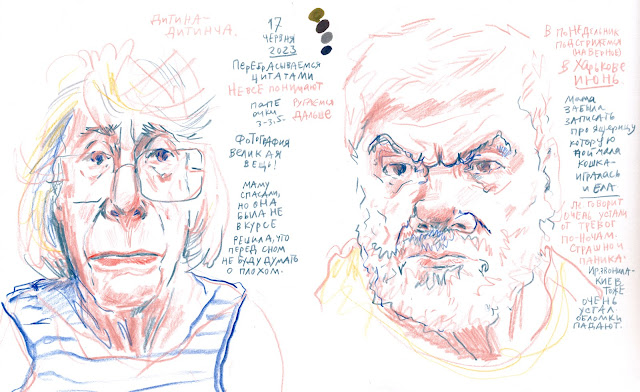 ДИТИНА-
ДИТИНЧА.
17
ЧЕРВНЯ
2023
ПЕРЕБРАСЫВАЕМСЯ
ЦИТАТАМИ
НЕ ВСЕ ПОНИМАЮТ
РУГАЕМСЯ
ДАЛЬШЕ
ПАПЕ
ОЧКИ
3-3,5.
ФОТОГРАФИЯ
ВЕЛИКАЯ
ВЕЩЬ!
МАМУ
СПАСАЛИ,
НО ОНА
БЫЛА НЕ
В КУРСЕ
РЕШИЛА, ЧТО
ПЕРЕД СНОМ
НЕ БУДУ ДУМАТЬ
О ПЛОХОМ.
В ПОНЕДЕЛЬНИК
ПОДСТРИЖЕМСЯ
(НАВЕРНОЕ)
В ХАРЬКОВЕ
ИЮНЬ
МАМА
ЗАБЫЛА
ЗАПИСАТЬ
ПРО ЯЩЕРИЦУ
КОТОРУЮ
ПОЙМАЛА
КОШКА-
ИГРАЛАСЬ
И ЕЛА
ГОВОРИТ
ОЧЕНЬ УСТАЛИ
ОТ ТРЕВОГ
ПО НОЧАМ.
СТРАШНО И
ПАНИКА.
КИЕВ
ТОЖЕ
ОЧЕНЬ
УСТАЛ
ОБЛОМКИ
ПАДАЮТ.